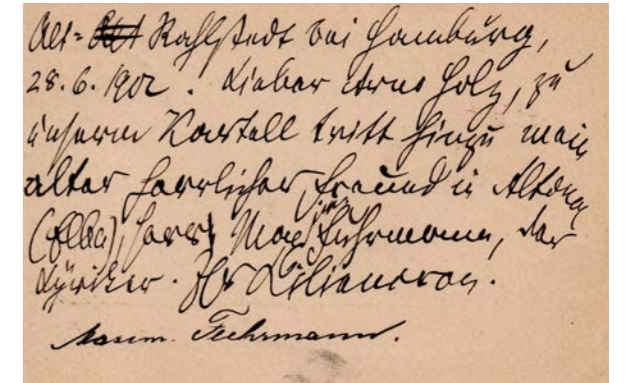 Alt= Rahlstedt bei Hamburg,
28.6.1902. Lieber Arno Holz, zu
unserm Kartell tritt hinzu mein
alter herrlicher Freund in Altona
(Elbe), Herr Max Fuhrmann, der
Lyriker. Ihr Liliencron.
Maxim. Fuhrmann.